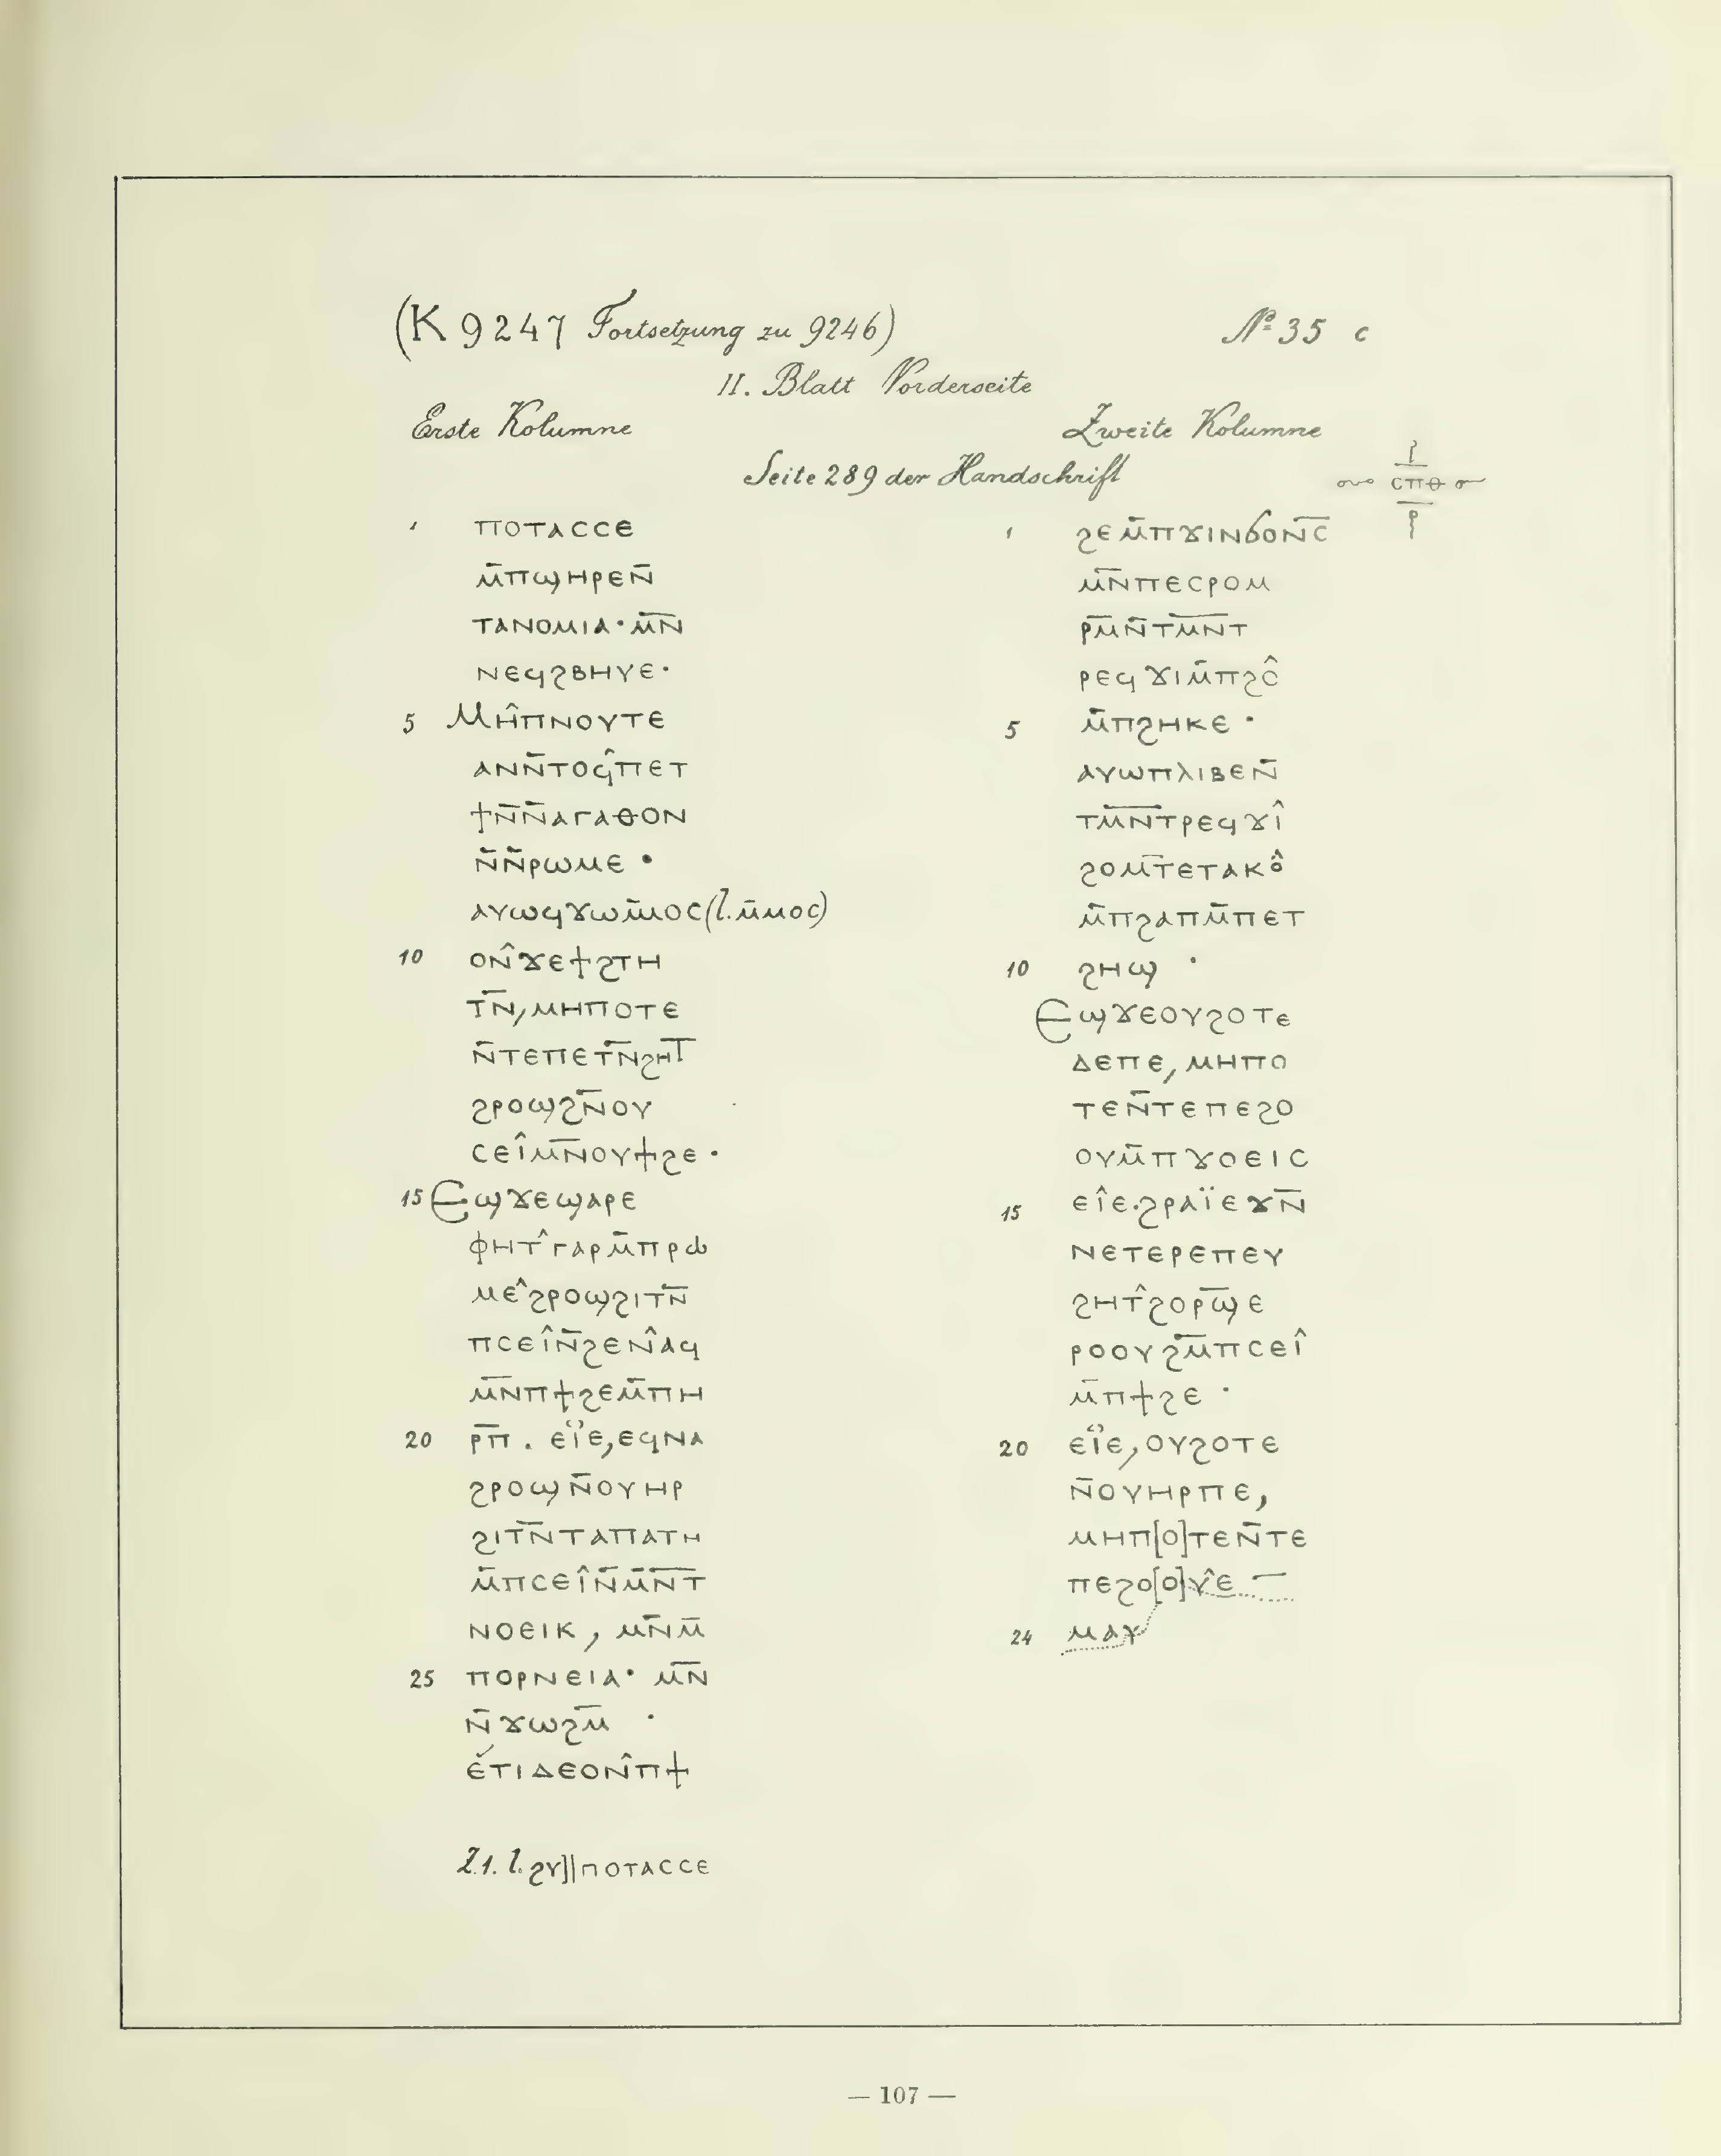 (K 9247 Fortsetzung zu 9246)
№ 35 c
II. Blatt Vorderseite
Erste Kolumne
Zweite Kolumne
Seite 289 der Handschrift
ⲥⲡⲑ
1 ⲡⲟⲧⲁⲥⲥⲉ
ⲙ̄ⲡϣⲏⲣⲉⲛ̄
ⲧⲁⲛⲟⲙⲓⲁ· ⲙ̄ⲛ̄
ⲛⲉϥϩⲃⲏⲩⲉ·
5 Ⲙⲏ̂ⲡⲛⲟⲩⲧⲉ
ⲁⲛⲛ̄ⲧⲟϥ̂ⲡⲉⲧ
ϯⲛ̄ⲛ̄ⲁⲅⲁⲑⲟⲛ
ⲛ̄ⲛ̄ⲣⲱⲙⲉ ·
ⲁⲩⲱϥϫⲱⲙ̄ⲙⲟⲥ(l. ⲙ̄ⲙⲟⲥ)
10 ⲟⲛ̂ϫⲉϯϩⲧⲏ
ⲧⲛ̄, ⲙⲏⲡⲟⲧⲉ
ⲛ̄ⲧⲉⲡⲉⲧⲛ̄ϩⲏⲧ
ϩⲣⲟϣϩⲛ̄ⲟⲩ
ⲥⲉⲓ̂ⲙ̄ⲛ̄ⲟⲩϯϩⲉ ·
15 Ⲉϣϫⲉϣⲁⲣⲉ
ⲫⲏⲧ̂ⲅⲁⲣⲙ̄ⲡⲣⲱ
ⲙⲉ̂ϩⲣⲟϣϩⲓⲧⲛ̄
ⲡⲥⲉⲓ̂ⲛ̄ϩⲉⲛⲁ̂ϥ
ⲙ̄ⲛ̄ⲡϯϩⲉⲙ̄ⲡⲏ
20 ⲣⲡ̄ . ⲉⲓ̈ⲉ, ⲉϥⲛⲁ
ϩⲣⲟϣⲛ̄ⲟⲩⲏⲣ
ϩⲓⲧⲛ̄ⲧⲁⲡⲁⲧⲏ
ⲙ̄ⲡⲥⲉⲓ̂ⲛ̄ⲙ̄ⲛ̄ⲧ
ⲛⲟⲉⲓⲕ, ⲙ̄ⲛ̄ⲙ̄
25 ⲡⲟⲣⲛⲉⲓⲁ· ⲙ̄ⲛ̄
ⲛ̄ϫⲱϩⲙ̄ ·
ⲉ̌ⲧⲓⲇⲉⲟⲛ̂ⲡϯ
Z.1. l. ϩⲩ]||ⲡⲟⲧⲁⲥⲥⲉ
1 ϩⲉⲙ̄ⲡϫⲓⲛϭⲟⲛ̄ⲥ̄
ⲙ̄ⲛ̄ⲡⲉⲥⲣⲟⲙ
ⲣⲙ̄ⲛ̄ⲧⲙ̄ⲛ̄ⲧ
ⲣⲉϥϫⲓⲙ̄ⲡϩⲟ̂
5 ⲙ̄ⲡϩⲏⲕⲉ ·
ⲁⲩⲱⲡⲗⲓⲃⲉⲛ̄
ⲧⲙ̄ⲛ̄ⲧⲣⲉϥϫⲓ̂
ϩⲟⲙ̄ⲧⲉⲧⲁⲕⲟ̂
ⲙ̄ⲡϩⲁⲡⲙ̄ⲡⲉⲧ
10 ϩⲏϣ ·
Ⲉϣϫⲉⲟⲩϩⲟⲧⲉ
ⲇⲉⲡⲉ, ⲙⲏⲡⲟ
ⲧⲉⲛ̄ⲧⲉⲡⲉϩⲟ
ⲟⲩⲙ̄ⲡϫⲟⲉⲓⲥ
15 ⲉⲓ̂ⲉ·ϩⲣⲁⲓ̈ⲉϫⲛ̄
ⲛⲉⲧⲉⲣⲉⲡⲉⲩ
ϩⲏⲧ̂ϩⲟⲣϣ̄ⲉ
ⲣⲟⲟⲩϩⲙ̄ⲡⲥⲉⲓ̂
ⲙ̄ⲡϯϩⲉ ·
20 ⲉⲓ̈ⲉ, ⲟⲩϩⲟⲧⲉ
ⲛ̄ⲟⲩⲏⲣⲡⲉ,
ⲙⲏⲡ[ⲟ]ⲧⲉⲛ̄ⲧⲉ
ⲡⲉϩⲟ[ⲟ]ⲩ̂ⲉ —
24 ⲙⲁⲩ
— 107 —